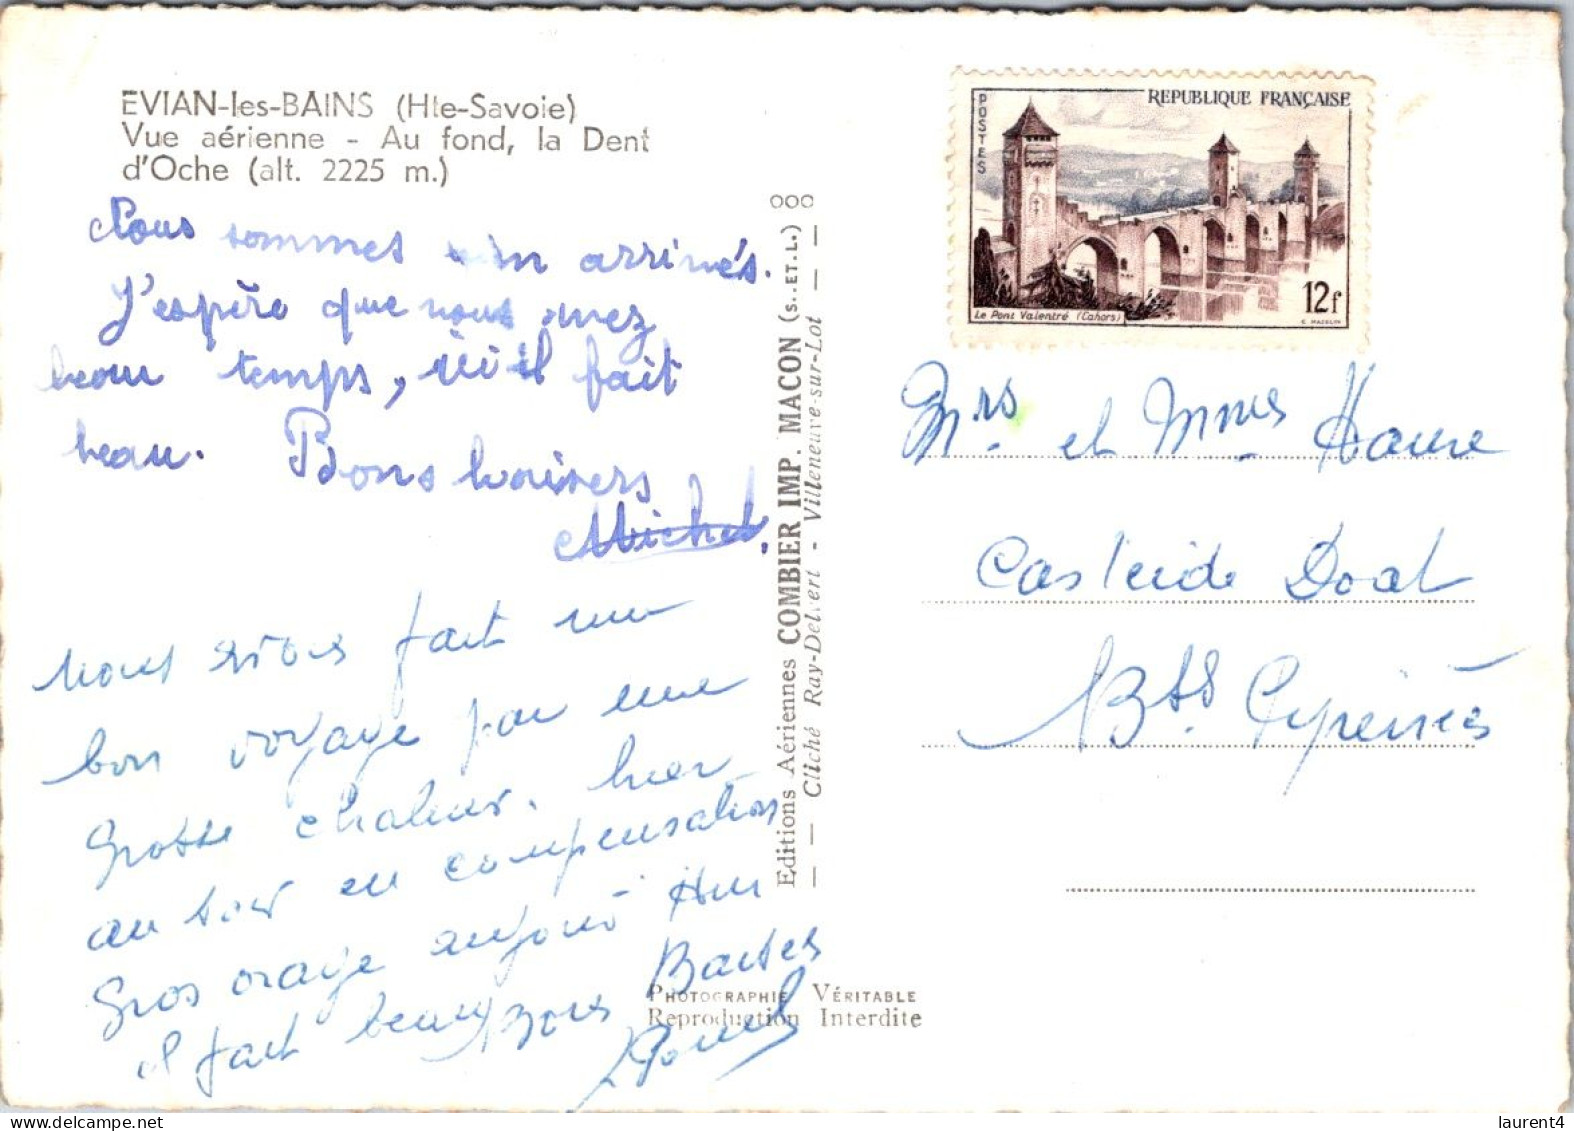 EVIAN-les-BAINS (Hte-Savoie)
Vue aérienne - Au fond, la Dent
d'Oche (alt. 2225 m.)
Nous sommes bien arrivés.
J'espère que vous avez
beau temps, ici il fait
beau. Bons baisers
Michel.
nous avons fait un
bon voyage par une
grosse chaleur. hier
au soir en compensation
gros orage aujourd'hui
il fait beau Bons Baisers
Editions Aériennes COMBIER IMP. MACON (S.-ET-L.)
— — Cliché Ray-Delvert - Villeneuve-sur-Lot — —
PHOTOGRAPHIE VÉRITABLE
Reproduction Interdite
POSTES
REPUBLIQUE FRANÇAISE
Le Pont Valentré (Cahors)
12f
C. MAZELIN
Mrs et Mmes
Casteide Doat
Bses Pyrénées
laurent4